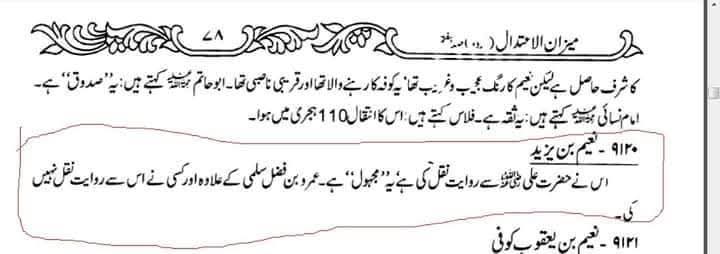 ۷۸
میزان الاعتدال (
کا شرف حاصل ہے لیکن نعیم کا رنگ عجیب و غریب تھا' یہ کوفہ کا رہنے والا تھا اور قریبی ناصبی تھا۔ ابو حاتم رحمۃ اللہ علیہ کہتے ہیں: یہ ''صدوق'' ہے۔
امام نسائی رحمۃ اللہ علیہ کہتے ہیں: یہ ثقہ ہے۔ فلاس کہتے ہیں: اس کا انتقال 110 ہجری میں ہوا۔
۹۱۲۰ - نعیم بن یزید
اس نے حضرت علی سے روایت نقل کی ہے' یہ ''مجہول'' ہے۔ عمرو بن فضل سلمی کے علاوہ اور کسی نے اس سے روایت نقل نہیں
کی۔
۹۱۲۱ - نعیم بن یعقوب کوفی